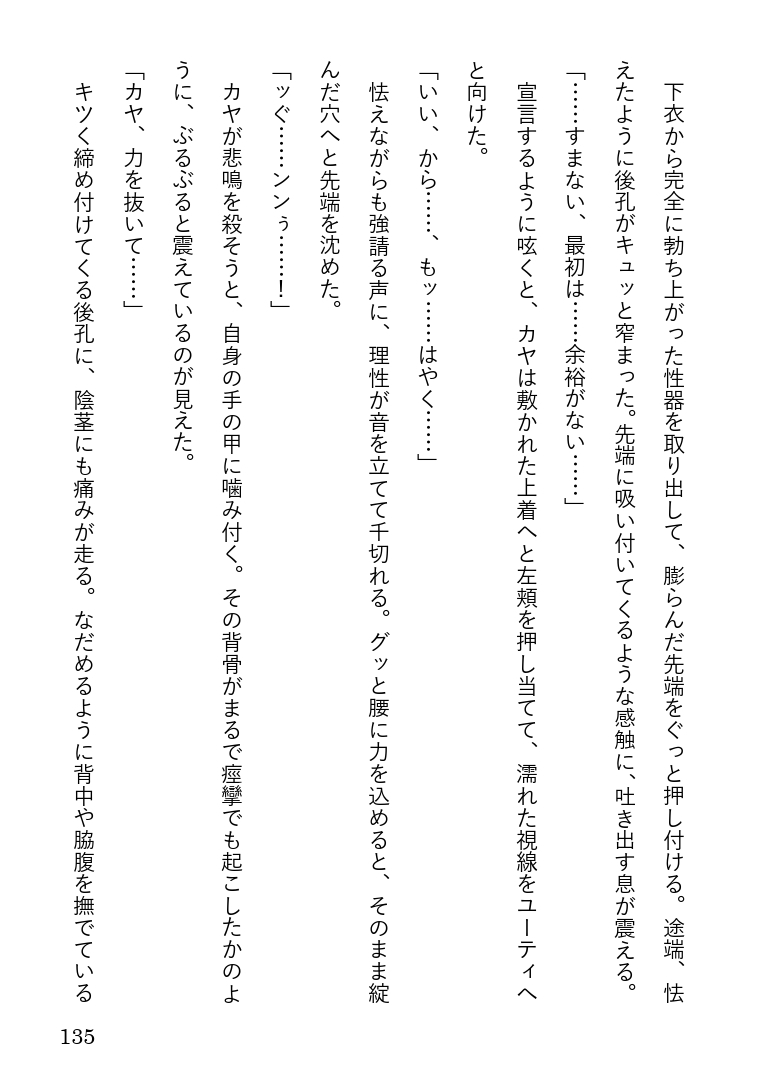 下衣から完全に勃ち上がった性器を取り出して、膨らんだ先端をぐっと押し付ける。途端、怯
えたように後孔がキュッと窄まった。先端に吸い付いてくるような感触に、吐き出す息が震える。
「……すまない、最初は……余裕がない……」
宣言するように呟くと、カヤは敷かれた上着へと左頬を押し当てて、濡れた視線をユーティへ
と向けた。
「いい、から……、もッ……はやく……」
怯えながらも強請る声に、理性が音を立てて千切れる。グッと腰に力を込めると、そのまま綻
んだ穴へと先端を沈めた。
「ッぐ……ンンぅ……！」
カヤが悲鳴を殺そうと、自身の手の甲に噛み付く。その背骨がまるで痙攣でも起こしたかのよ
うに、ぶるぶると震えているのが見えた。
「カヤ、力を抜いて……」
キツく締め付けてくる後孔に、陰茎にも痛みが走る。なだめるように背中や脇腹を撫でている
135